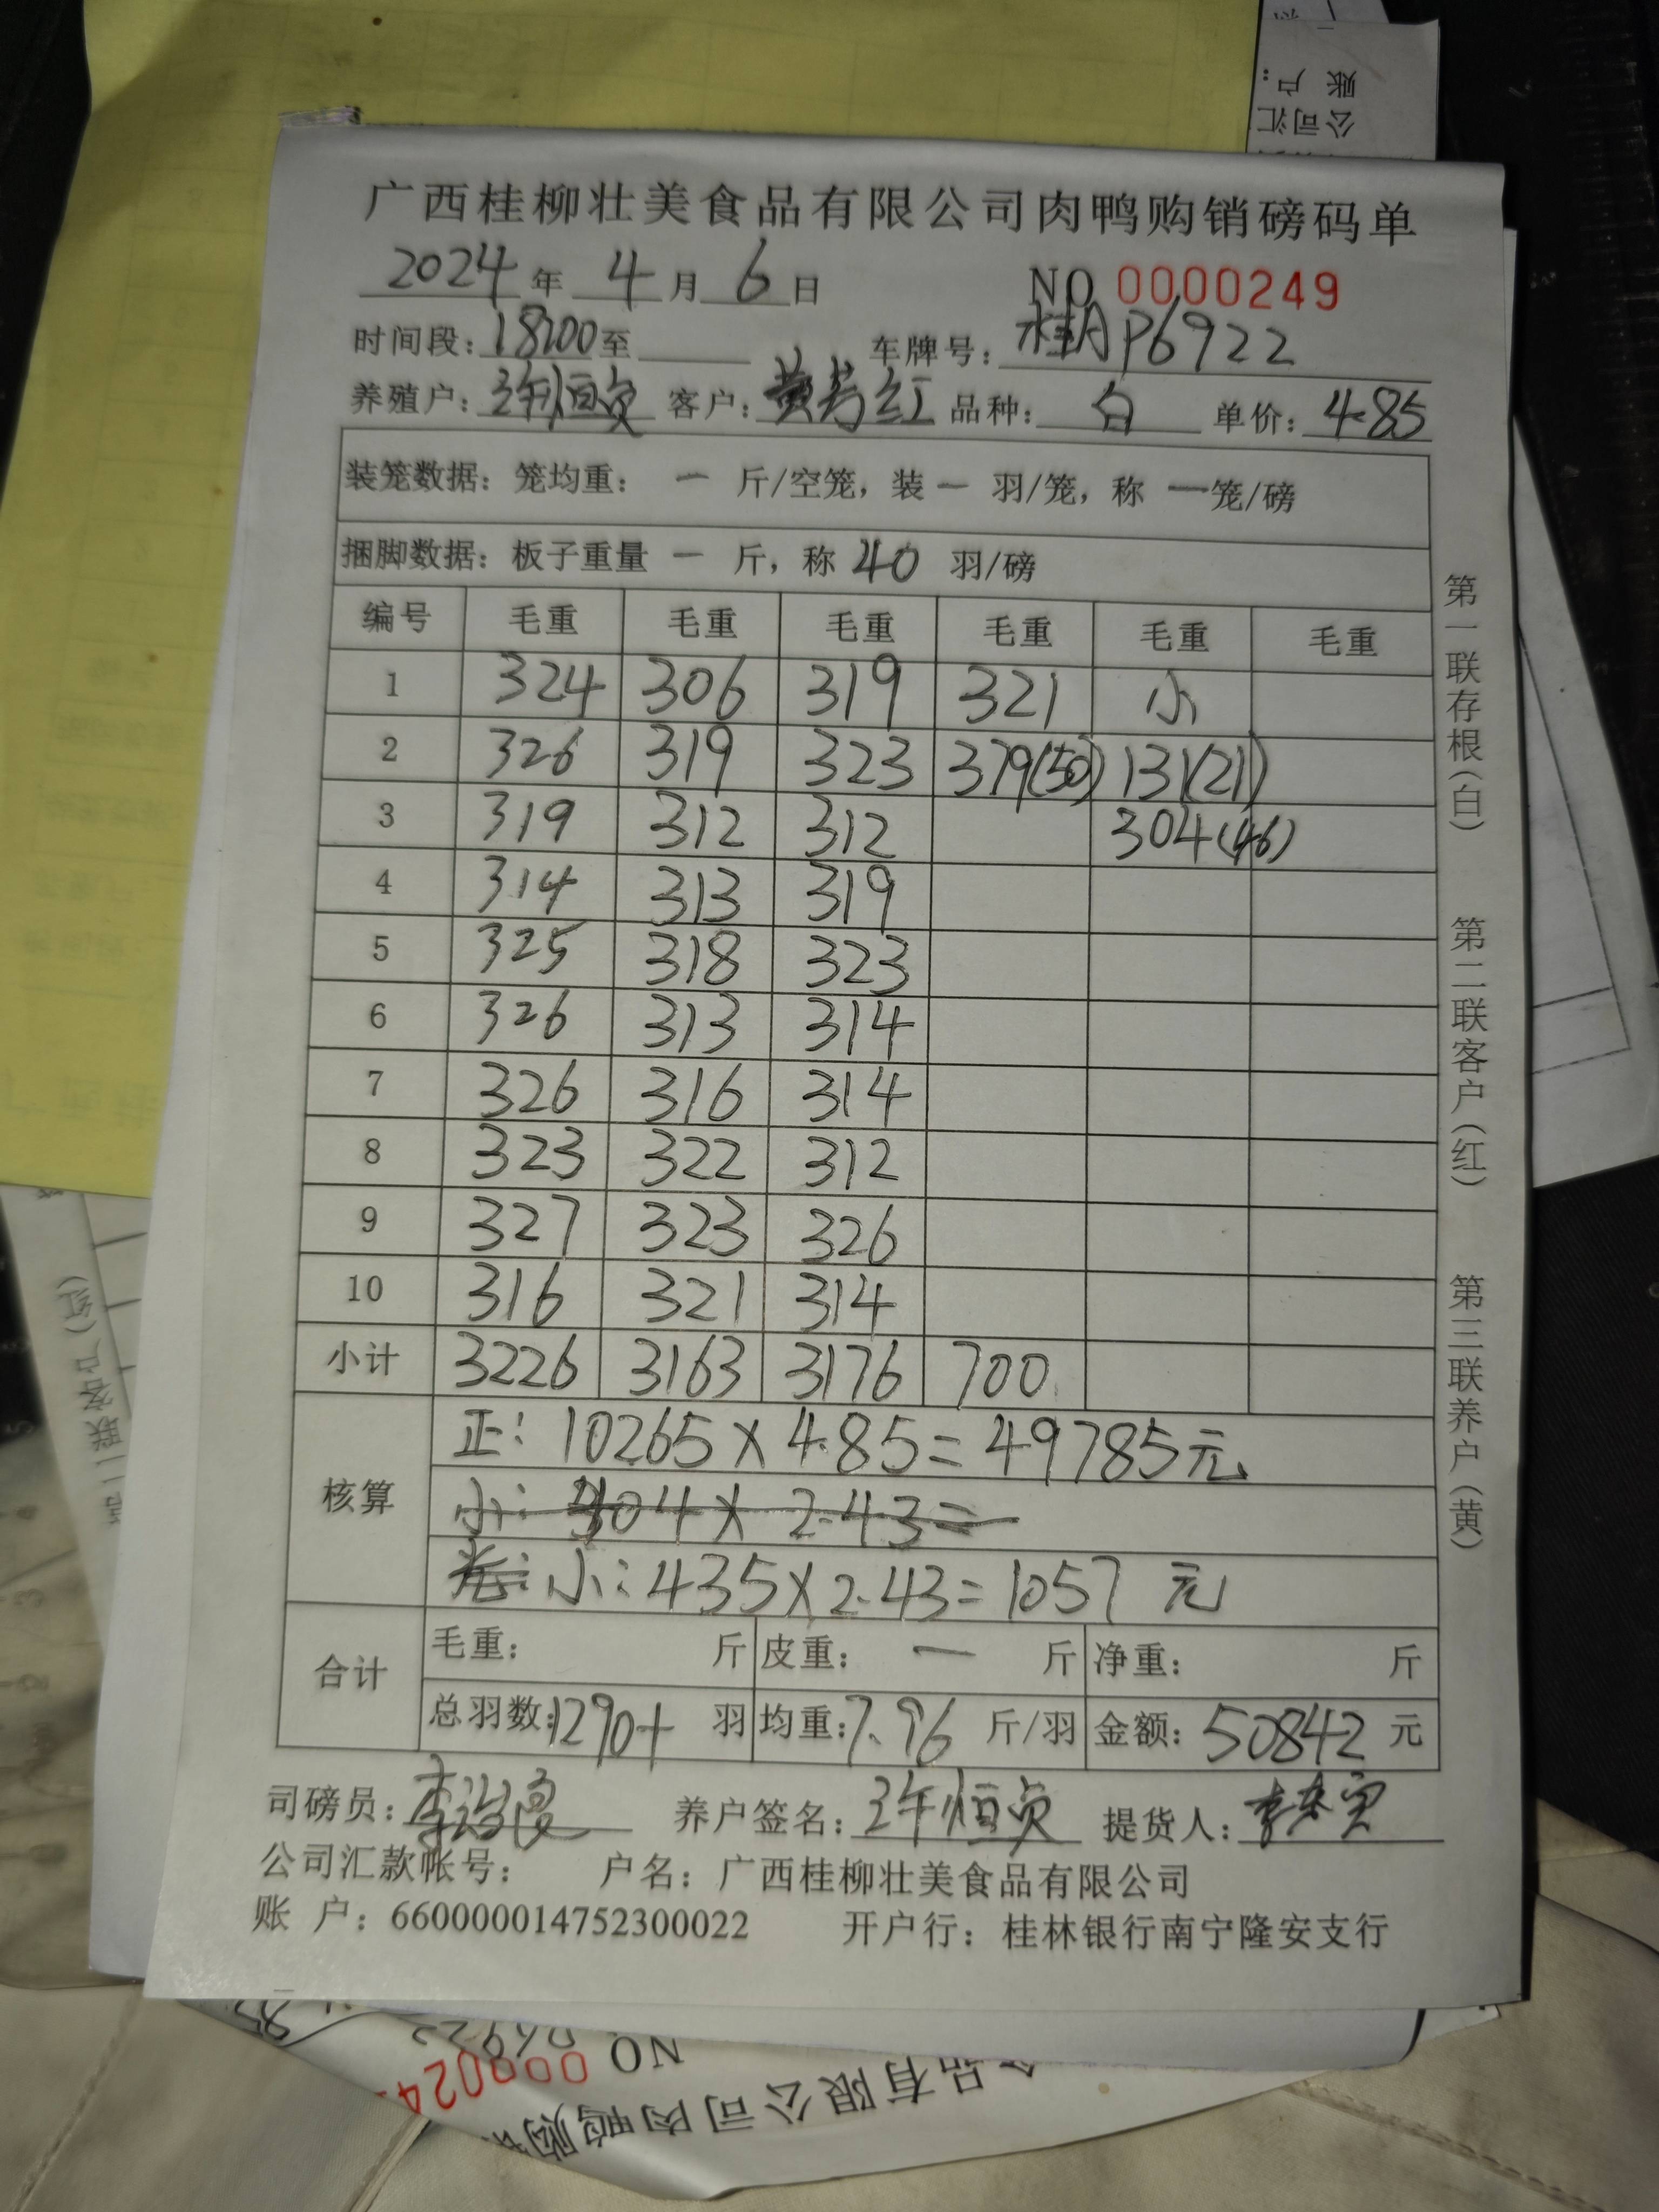 账 户:
公司汇
广西桂柳壮美食品有限公司肉鸭购销磅码单
2024年 4月 6日 NO 0000249
时间段: 18:00至 车牌号: 桂AP6922
养殖户: 恒贞 客户: 黄秀红 品种: 白 单价: 4.85
装笼数据: 笼均重: 一 斤/空笼, 装 一 羽/笼, 称 一笼/磅
捆脚数据: 板子重量 一 斤, 称 40 羽/磅
编号 毛重 毛重 毛重 毛重 毛重 毛重
1 324 306 319 321 小
2 326 319 323 379(50) 131(21)
3 319 312 312 304(46)
4 314 313 319
5 325 318 323
6 326 313 314
7 326 316 314
8 323 322 312
9 327 323 326
10 316 321 314
小计 3226 3163 3176 700
核算
正: 10265×4.85=49785元
小: 304× 2.43=
小: 435×2.43=1057 元
合计
毛重: 斤 皮重: 一 斤 净重: 斤
总羽数: 1290+ 羽 均重: 7.96 斤/羽 金额: 50842 元
司磅员: 养户签名: 恒贞 提货人:
公司汇款帐号: 户名: 广西桂柳壮美食品有限公司
账 户: 660000014752300022 开户行: 桂林银行南宁隆安支行
第一联存根(白) 第二联客户(红) 第三联养户(黄)
第二联客户(红)
NO 000024
食品有限公司肉鸭购销